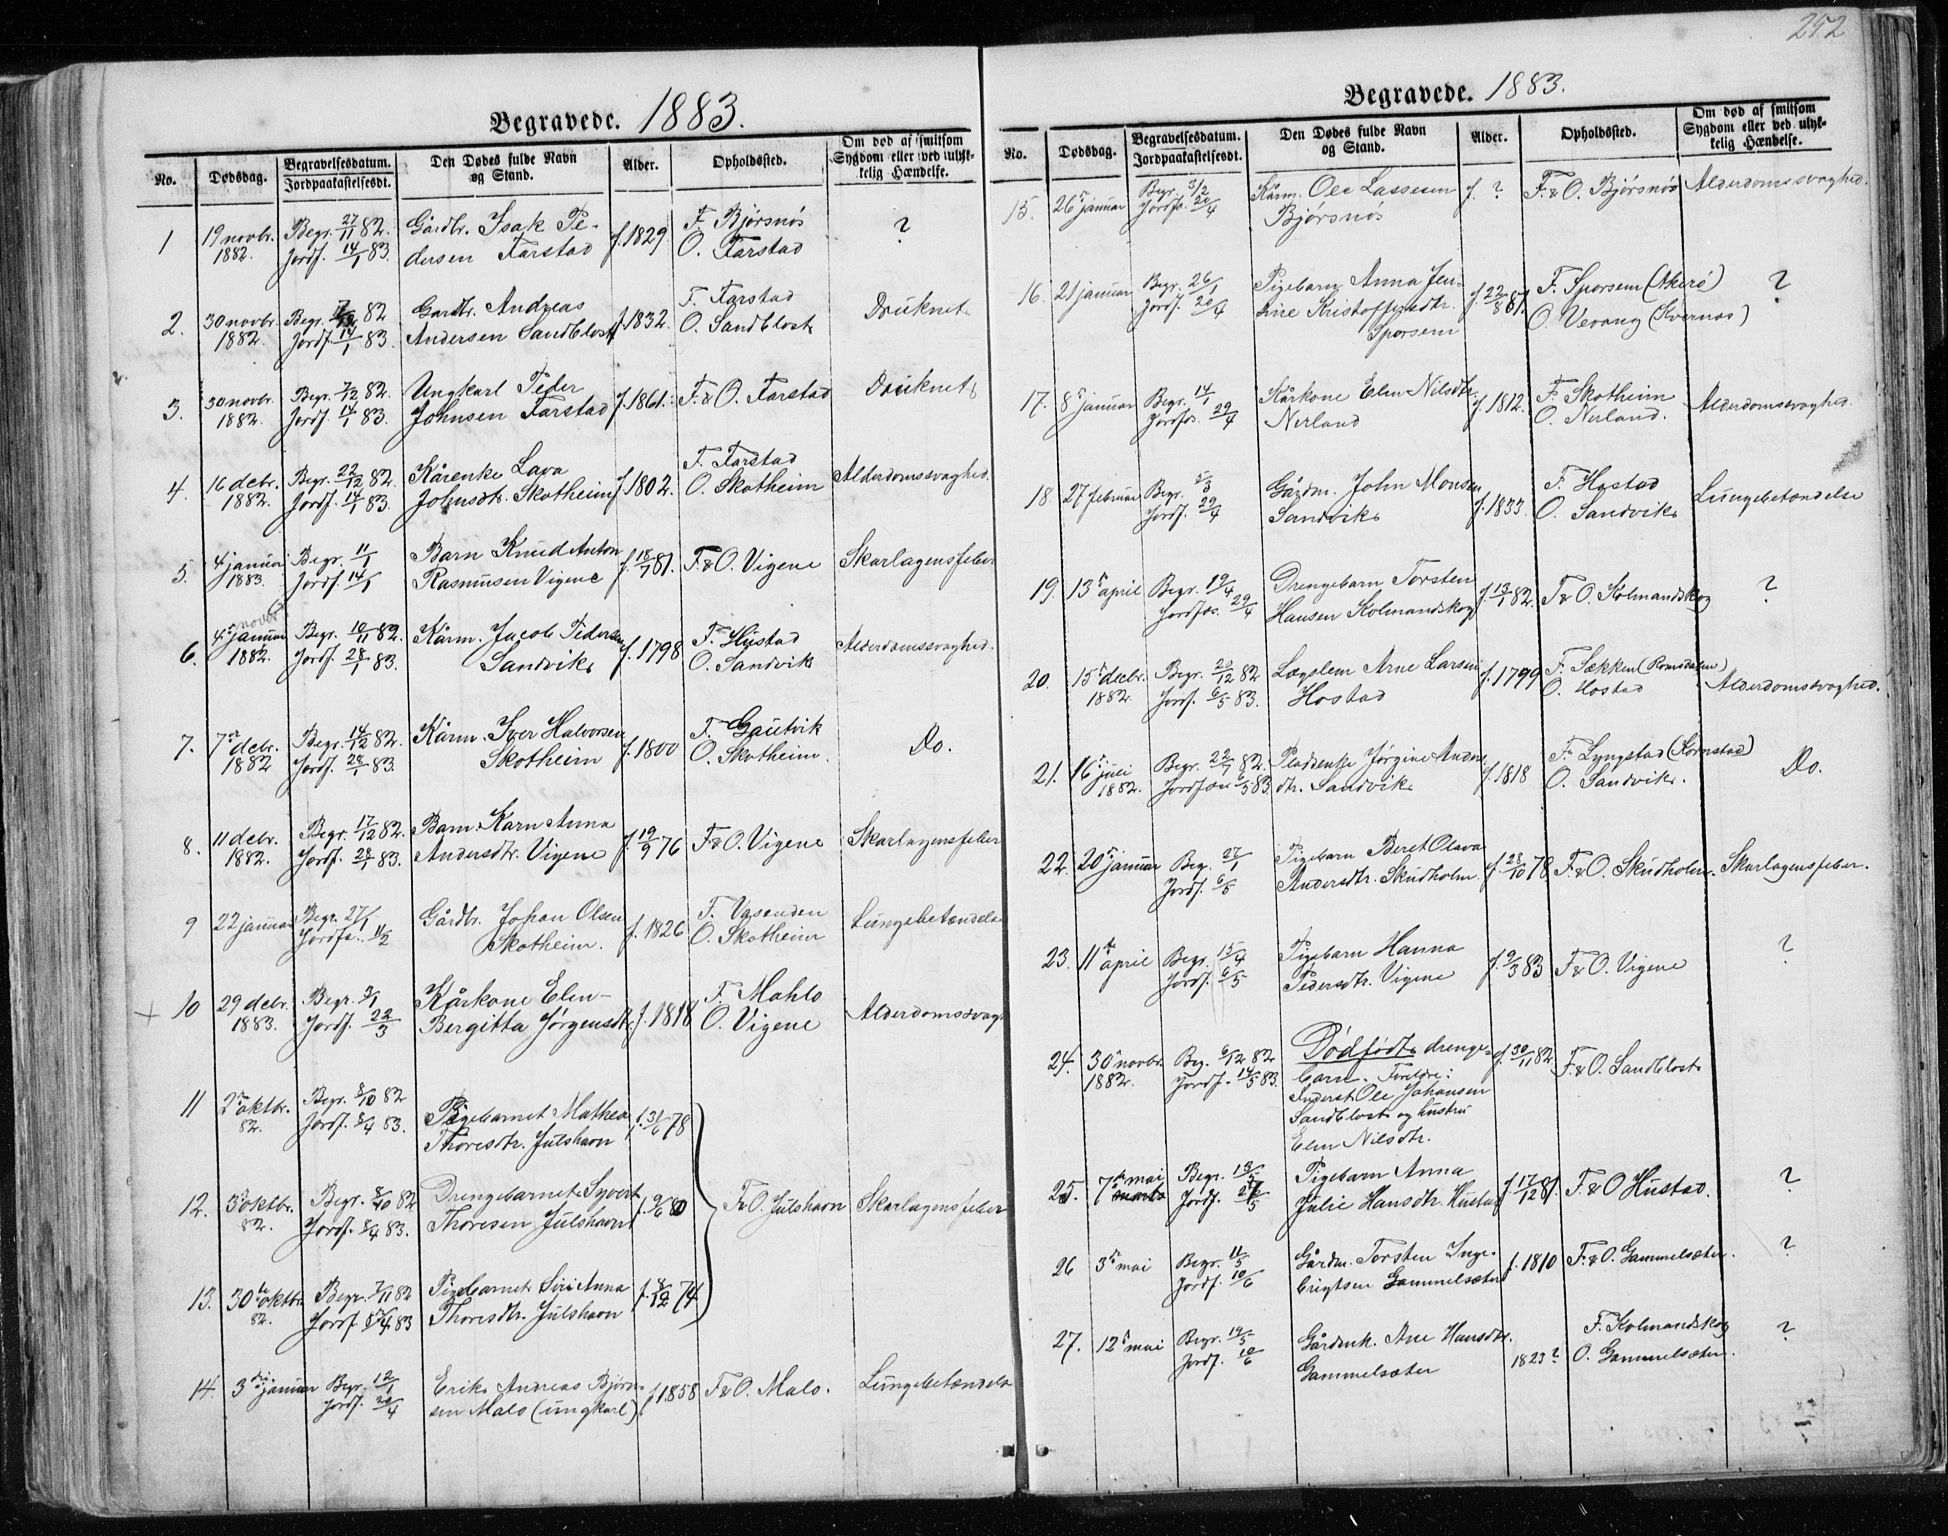 252
Begravede. 1883.
No.
Dødsdag.
Begravelsesdatum.
Jordpaakastelsesdt.
Den Dødes fulde Navn
og Stand.
Alder.
Opholdssted.
Om død af smitsom
Sygdom eller ved ulyk-
kelig Hændelse.
1 19 novbr. 1882. Begr. 27/11 82. Gårdbr. Isak Pe- f. 1829 F. Bjørsnøs ?
Jordf. 14/1 83. dersen Farstad O. Farstad
2. 30 novbr. 1882. Begr. 82 Gardbr. Andreas f. 1832. F. Farstad Druknet
Jordf. 14/1 83. Andersen Sandblost O. Sandblost
3. 30 novbr. 1882. Begr. 7/12 82. Ungkarl Peder f. 1861. F. & O. Farstad Druknet
Jordf. 14/1 83. Johnsen Farstad
4. 16 debr. 1882. Begr. 22/12 82. Kårenke Lava f. 1802. F. Farstad Alderdomssvaghed.
Jordf. 14/1 83. Johnsdtr. Skotheim O. Skotheim
5. 4 januar 1883. Begr. 11/1 Barn Knud Anton f. 18/7 81. F. & O. Vigene Skarlagensfeber
Jordf. 14/1 Rasmusen Vigene
6. 4 januar novbr 1882. Begr. 10/11 82. Kårm. Jacob Pedersen f. 1798 F. Hustad Alderdomssvaghed.
Jordf. 28/1 83. Sandvik O. Sandvik
7. 7de debr. 1882 Begr. 14/12 82. Kårm. Iver Halvorsen f. 1800 F. Gautvik Do.
Jordf. 28/1 83. Skotheim O. Skotheim.
8. 11 debr. 1882. Begr. 17/12 82. Barn Karn Anna f. 19/9 76 F. & O. Vigene Skarlagensfeber
Jordf. 28/1 83. Andersdtr. Vigene
9 22 januar Begr. 27/1 Gårdbr. Johan Olsen f. 1826 F. Vasenden Lungebetændelse
Jordfa. 11/2 Skotheim. O. Skotheim
10 29 debr. 1883. Begr. 3/1 Kårkone Elen- f. 1818 F. Mahlo Alderdomssvagh
Jordf. 22/3 Bergitta Jørgensdtr. O. Vigene
11 2 oktbr. 82. Begr. 8/10 82 Pigebarnet Mathea f. 31/6 78
Jordf. 8/4 83. Thoresdtr. Julshavn
12. 3 oktbr. 82. Begr. 8/10 82 Drengebarnet Syvert f. 9/6 80 F. & O. Julshavn Skarlagensfeber
Jordf. 8/4 83. Thoresen Julshavn
13. 30te oktbr. 82. Begr. 7/11 82 Pigebarnet Siri Anna f. 8/12 74
Jordf. 8/4 83 Thoresdtr. Julshavn
14. 3die januar Begr. 12/1 Erik Andreas Bjørn- f. 1858 F. & O. Malo. Lungebetændelse
Jordf. 20/4 sen Malo (ungkarl)
Begravede. 1883.
No.
Dødsdag.
Begravelsesdatum.
Jordpaakastelsesdt.
Den Dødes fulde Navn
og Stand.
Alder.
Opholdssted.
Om død af smitsom
Sygdom eller ved ulyk-
kelig Hændelse.
15. 26 januar Begr. 5/2 Kårm. Ole Lassesen f. ? F. & O. Bjørsnøs Alderdomssvaghed.
Jordfa. 20/4 Bjørsnøs
16. 21 januar Begr. 26/1 Pigebarn Anna Jen- f. 22/8 81. F. Sporsem (Akerø) ?
Jordf. 20/4 sine Kristoffersdtr. O. Vevang (Kvernes)
Sporsem
17. 8 januar Begr. 14/1 Kårkone Elen Nilsdtr. f. 1812. F. Skotheim Alderdomssvaghed.
Jordfa. 29/4 Nerland O. Nerland.
18. 27 februar Begr. 5/3 Gårdm. John Monsen f. 1833. F. Hustad Lungebetændelse
Jordf. 29/4 Sandvik O. Sandvik
19. 13 april Begr. 19/4 Drengebarn Torsten f. 13/1 82. F. & O. Kolmandskog ?
Jordfa. 29/4 Hansen Kolmandskog
20. 15 decbr. 1882. Begr. 20/12 82 Lægslem Arne Larsen f. 1799 F. Sækken (Romsdalen) Alderdomssvaghed.
Jordf. 6/5 83. Hostad O. Hostad
21. 16 juli 1882. Begr. 22/7 82. Pladsenke Jørgine Anders- f. 1818 F. Lyngstad (Kornstad) Do.
Jordfa 6/5 83 dtr. Sandvik O. Sandvik.
22. 20 januar Beg. 27/1 Pigebarn Beret Olava f. 28/10 78 F. & O. Skudholm. Skarlagensfeber.
Jordf. 6/5 Andersdtr. Skudholm
23. 11te april Begr. 15/4 Pigebarn Hanna f. 9/3 83 F. & O. Vigene ?
Jordf. 6/5 Pedersdtr. Vigene
24. 30 novbr. 1882. Beg. 6/12 82 Dødfødt drenge- f. 30/11 82. F. & O. Sandblost
Jordf. 14/5 83. barn. Foreldre:
Inderst Ole Johansen
Sandblost og hustru
Elen Nilsdtr.
25. 7de mai marts Begr. 13/5 Pigebarn Anna f. 17/12 81. F. & O Hustad. ?
Jordf. 27/5 Julie Hansdtr. Hustad
26 3 mai Begr. 11/5 Gårdm. Torsten Inge- f. 1810 F. & O. Gammelsæter. ?
Jordf. 10/6 brigtsen Gammelsæter
27. 12 mai Begr. 19/5 Gårdenk. Ane Hansdtr. 1823? F. Kolmandskog ?
Jordf. 10/6 Gammelsæter O. Gammelsæter.